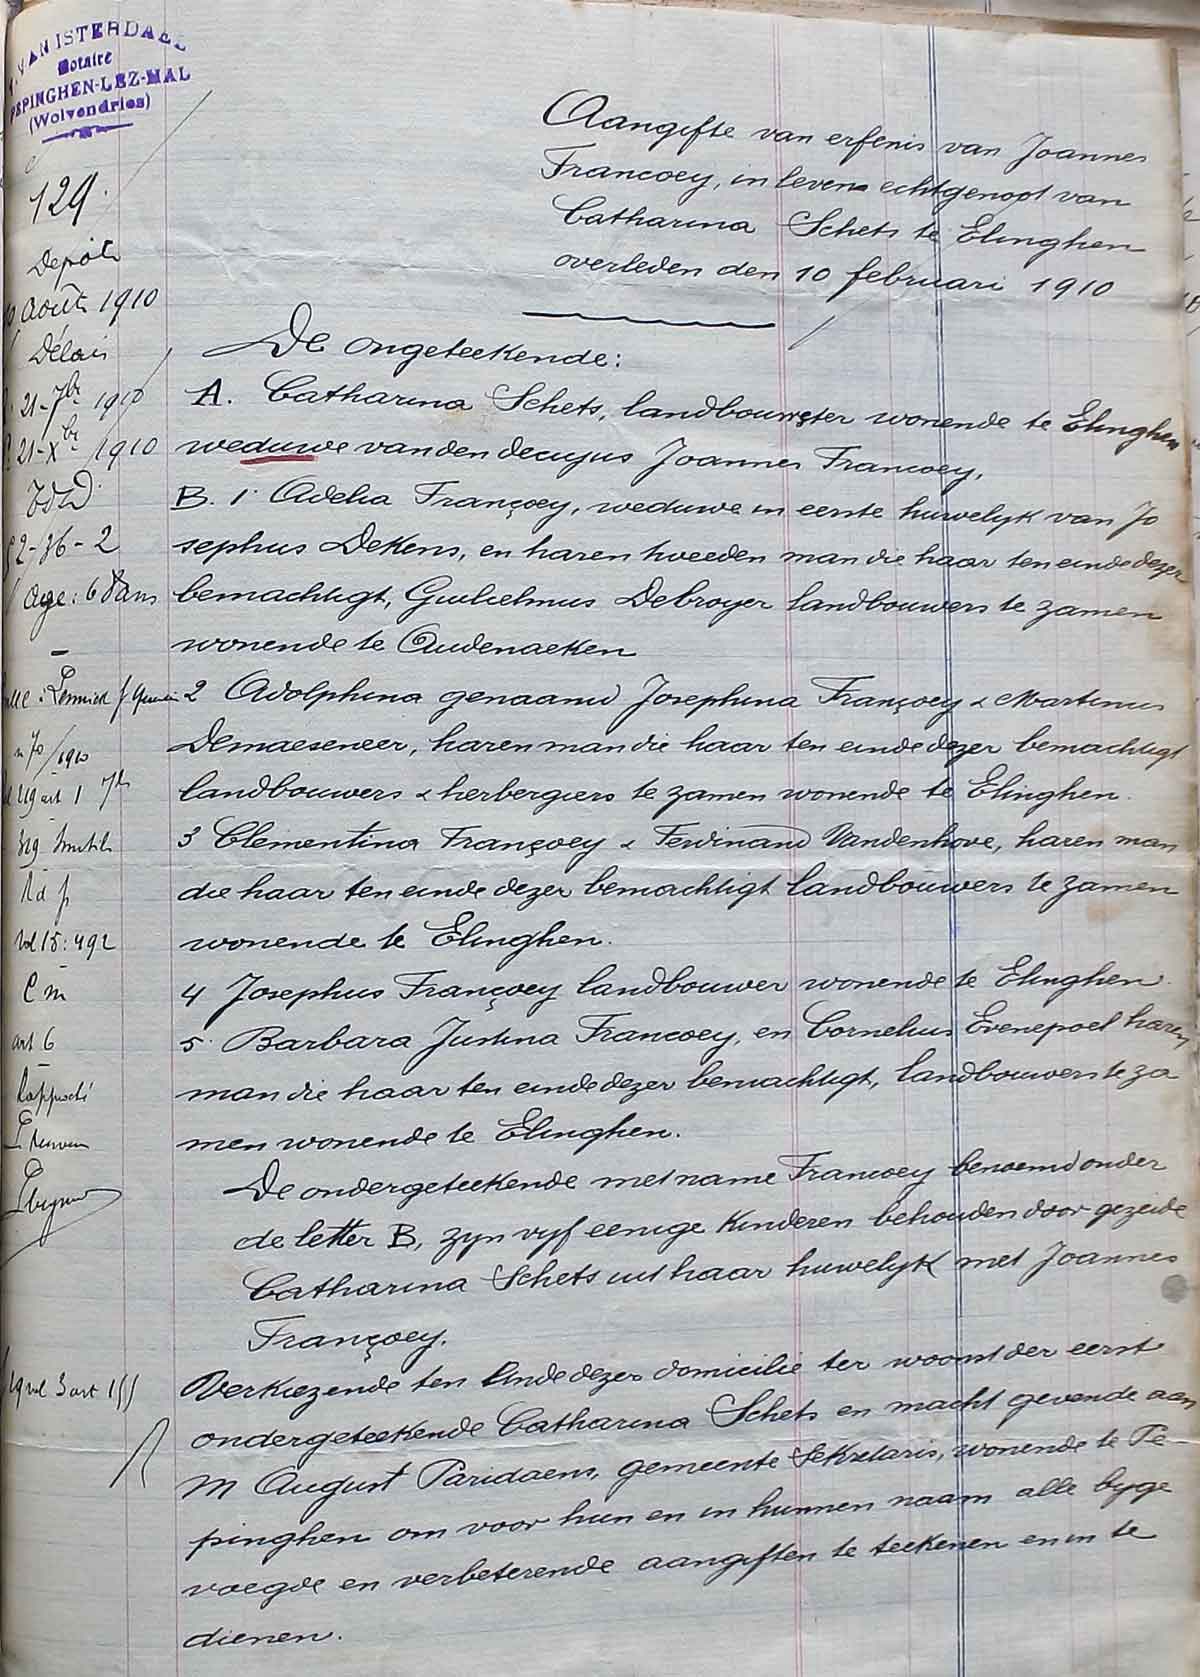 VAN ISTERDAEL
Notaire
PEPINGHEN-LEZ-HAL
(Wolvendries)
129.
Depôt
Août 1910
Délai
21-7bre 1910
21-Xbre 1910
2-36-2
Age: 68 ans
1910
art 1
Vol 15: 492
C m
art 6
vol 3 art 155
Aangifte van erfenis van Joannes
Francoey, in leven echtgenoot van
Catharina Schets te Elinghen
overleden den 10 februari 1910
De ongeteekende:
A. Catharina Schets, landbouwster wonende te Elinghen
weduwe van den decujus Joannes Francoey,
B. 1. Adelia Françoey, weduwe in eerste huwelijk van Jo
sephus DeKens, en haren tweeden man die haar ten einde dezer
bemachtigt, Gulielmus Debroyer landbouwers te zamen
wonende te Audenaeken
2 Adolphina genaamd Josephina Françoey & Martinus
Demaeseneer, haren man die haar ten einde dezer bemachtigt
landbouwers & herbergiers te zamen wonende te Elinghen.
3 Clementina Françoey & Ferdinand Vandenhove, haren man
die haar ten einde dezer bemachtigt landbouwers te zamen
wonende te Elinghen.
4 Josephus Françoey landbouwer wonende te Elinghen.
5. Barbara Justina Francoey, en Cornelius Evenepoel haren
man die haar ten einde dezer bemachtigt, landbouwers te za
men wonende te Elinghen.
De ondergeteekende met name Francoey benoemd onder
de letter B, zyn vyf eenige Kinderen behouden door gezeide
Catharina Schets uit haar huwelyk met Joannes
Françoey.
Verkiezende ten einde dezer domicilie ter woonst der eerst
ondergeteekende Catharina Schets en macht gevende aan
M August Paridaens, gemeente Sekretaris, wonende te Pe-
pinghen om voor hun en in hunnen naam alle byge
voegde en verbeterende aangiften te teekenen en in te
dienen.